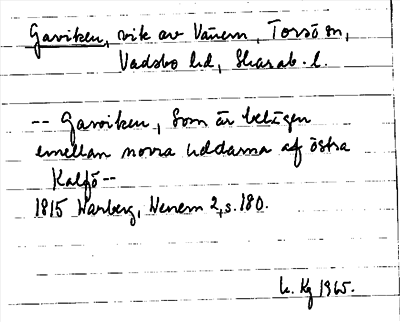 Gaviken, vik av Vänern, Torsö sn,
Vadsbo hd, Skarab. l.
-- Gawiken, Som är belägen
emellan norra Uddarna af östra
Kalfö --
1815 Warberg, Wenern 2, s. 180.
1965.